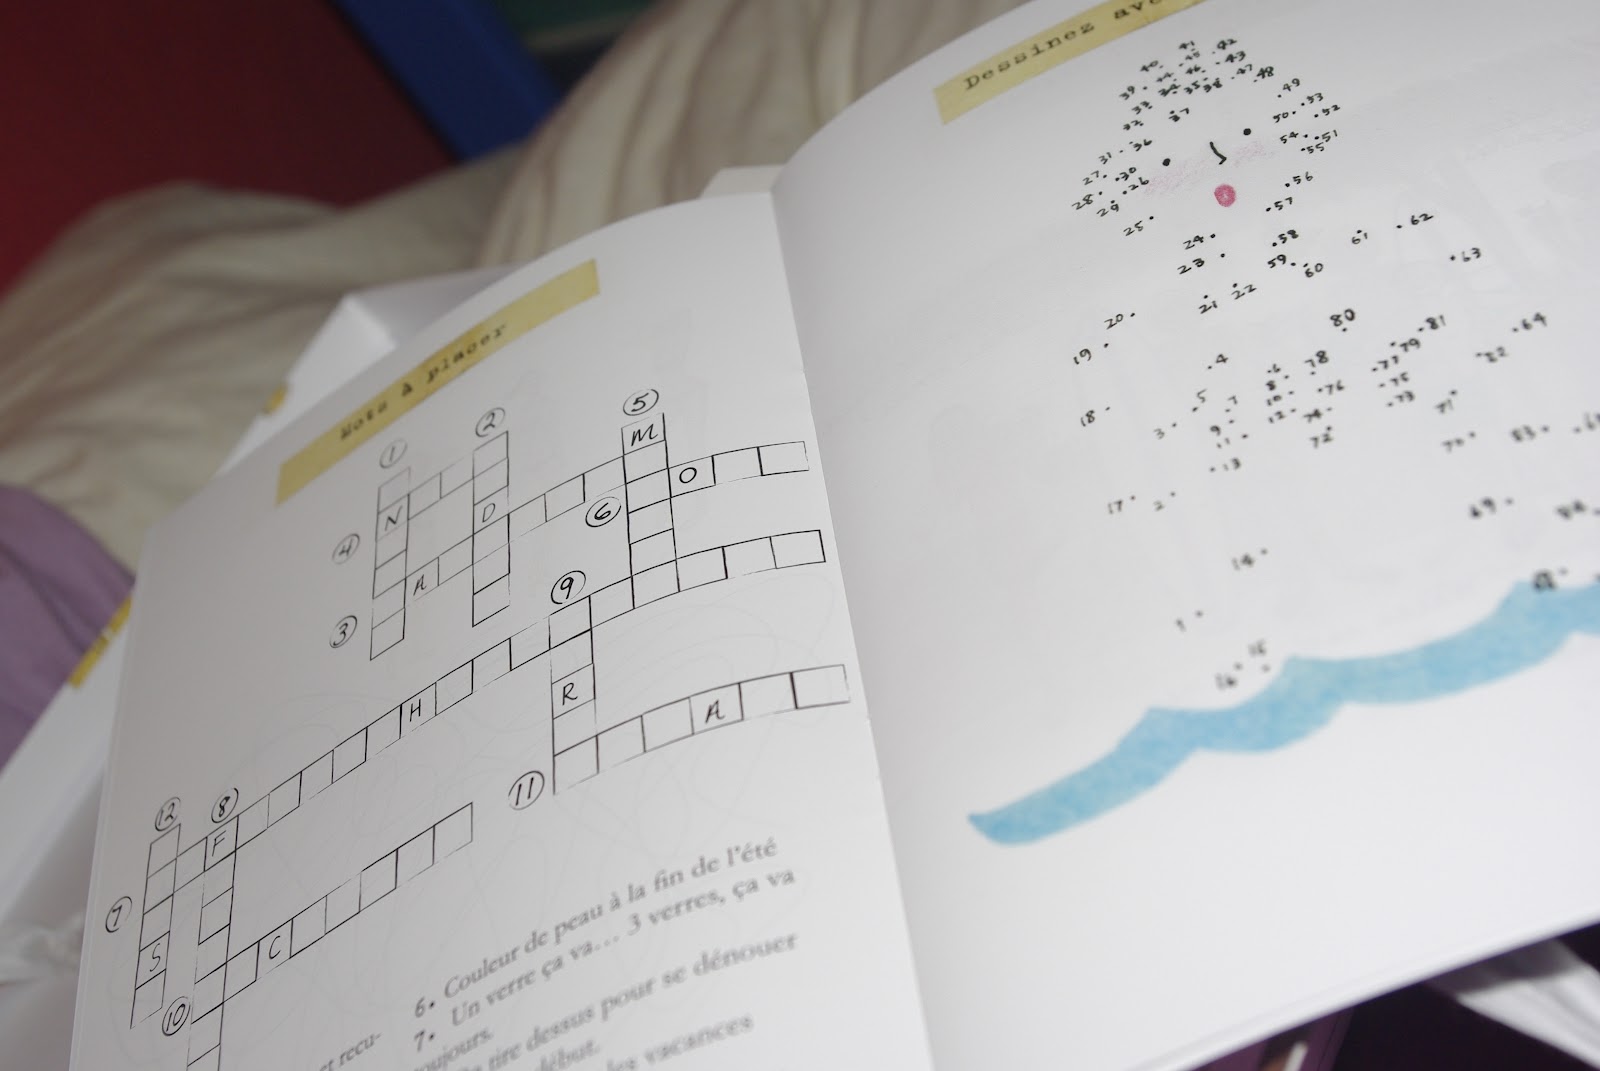 Mots à placer
1
2
5
M
N
D
O
4
6
A
3
9
H
R
A
11
12
8
F
7
S
C
10
6. Couleur de peau à la fin de l'été
7. Un verre ça va... 3 verres, ça va
toujours.
tire dessus pour se dénouer
début.
les vacances
et recu-
Dessinez
41 42
40 45 43
39 44 46 47 48
33 34 35 38 49
32 37 50 53 52
31 36 54 51
27 30 55
28 29 26 56
25 57
24 58 61 62
23 59 60 63
21 22
20 80 81 64
19 4 78 79 82
6 77
5 8 76 75
18 7 10 73
3 9 12 74 71
11 72 70 83
13
17 2 69
14
1
16 15